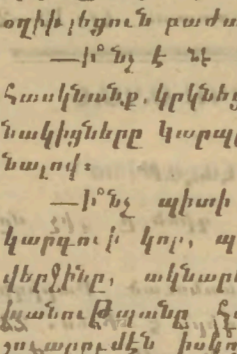 օղիի, լեցուն բաժա
—Ի՞նչ է նե
Հասկնանք, կրկնեց
նակիցները կարպ
նալով։
—Ի՞նչ պիտի
կարդու ի կոչ, պ
վերջինը, ակնար
խանութպանը
իսկոյ